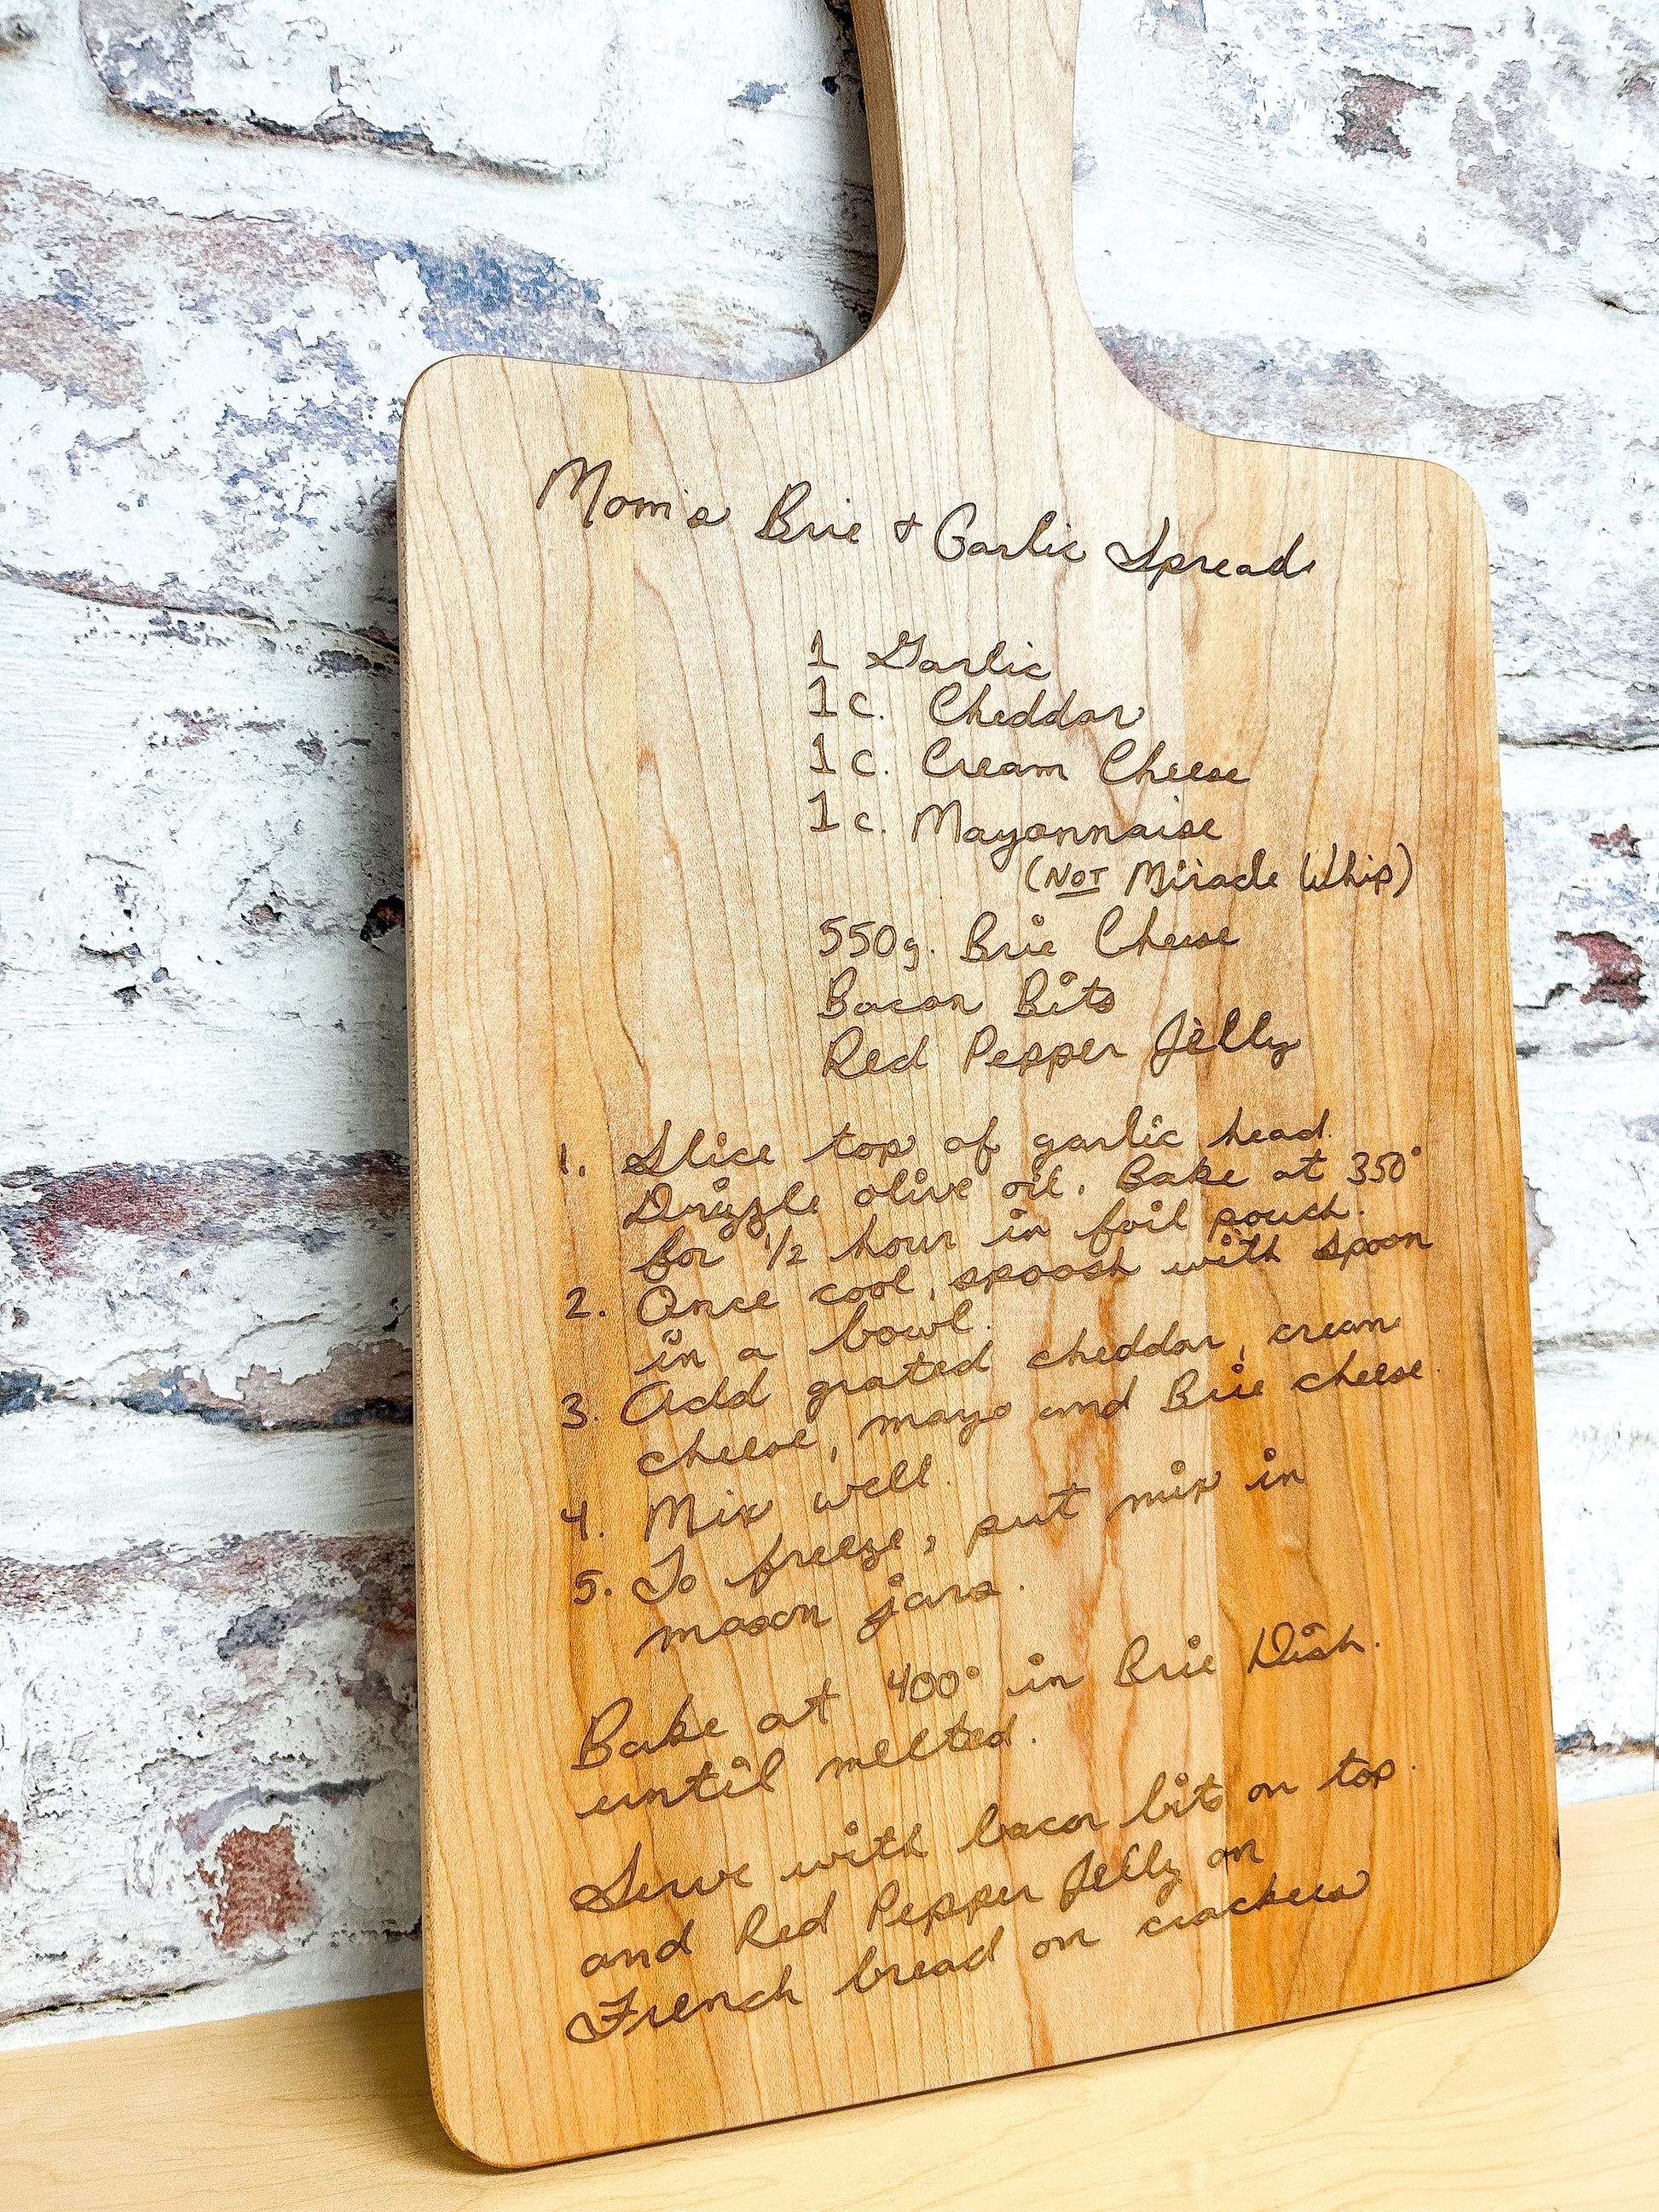 Mom's Brie + Garlic Spread
1 Garlic
1 c. Cheddar
1 c. Cream Cheese
1 c. Mayonnaise
(NOT Miracle Whip)
550g. Brie Cheese
Bacon Bits
Red Pepper Jelly
1. Slice top of garlic head.
Drizzle olive oil. Bake at 350°
for 1/2 hour in foil pouch.
2. Once cool, spoosh with spoon
in a bowl.
3. Add grated cheddar, cream
cheese, mayo and Brie cheese.
4. Mix well.
5. To freeze, put mix in
mason jars.
Bake at 400° in Brie Dish.
until melted.
Serve with bacon bits on top.
and Red Pepper Jelly on
French bread or crackers